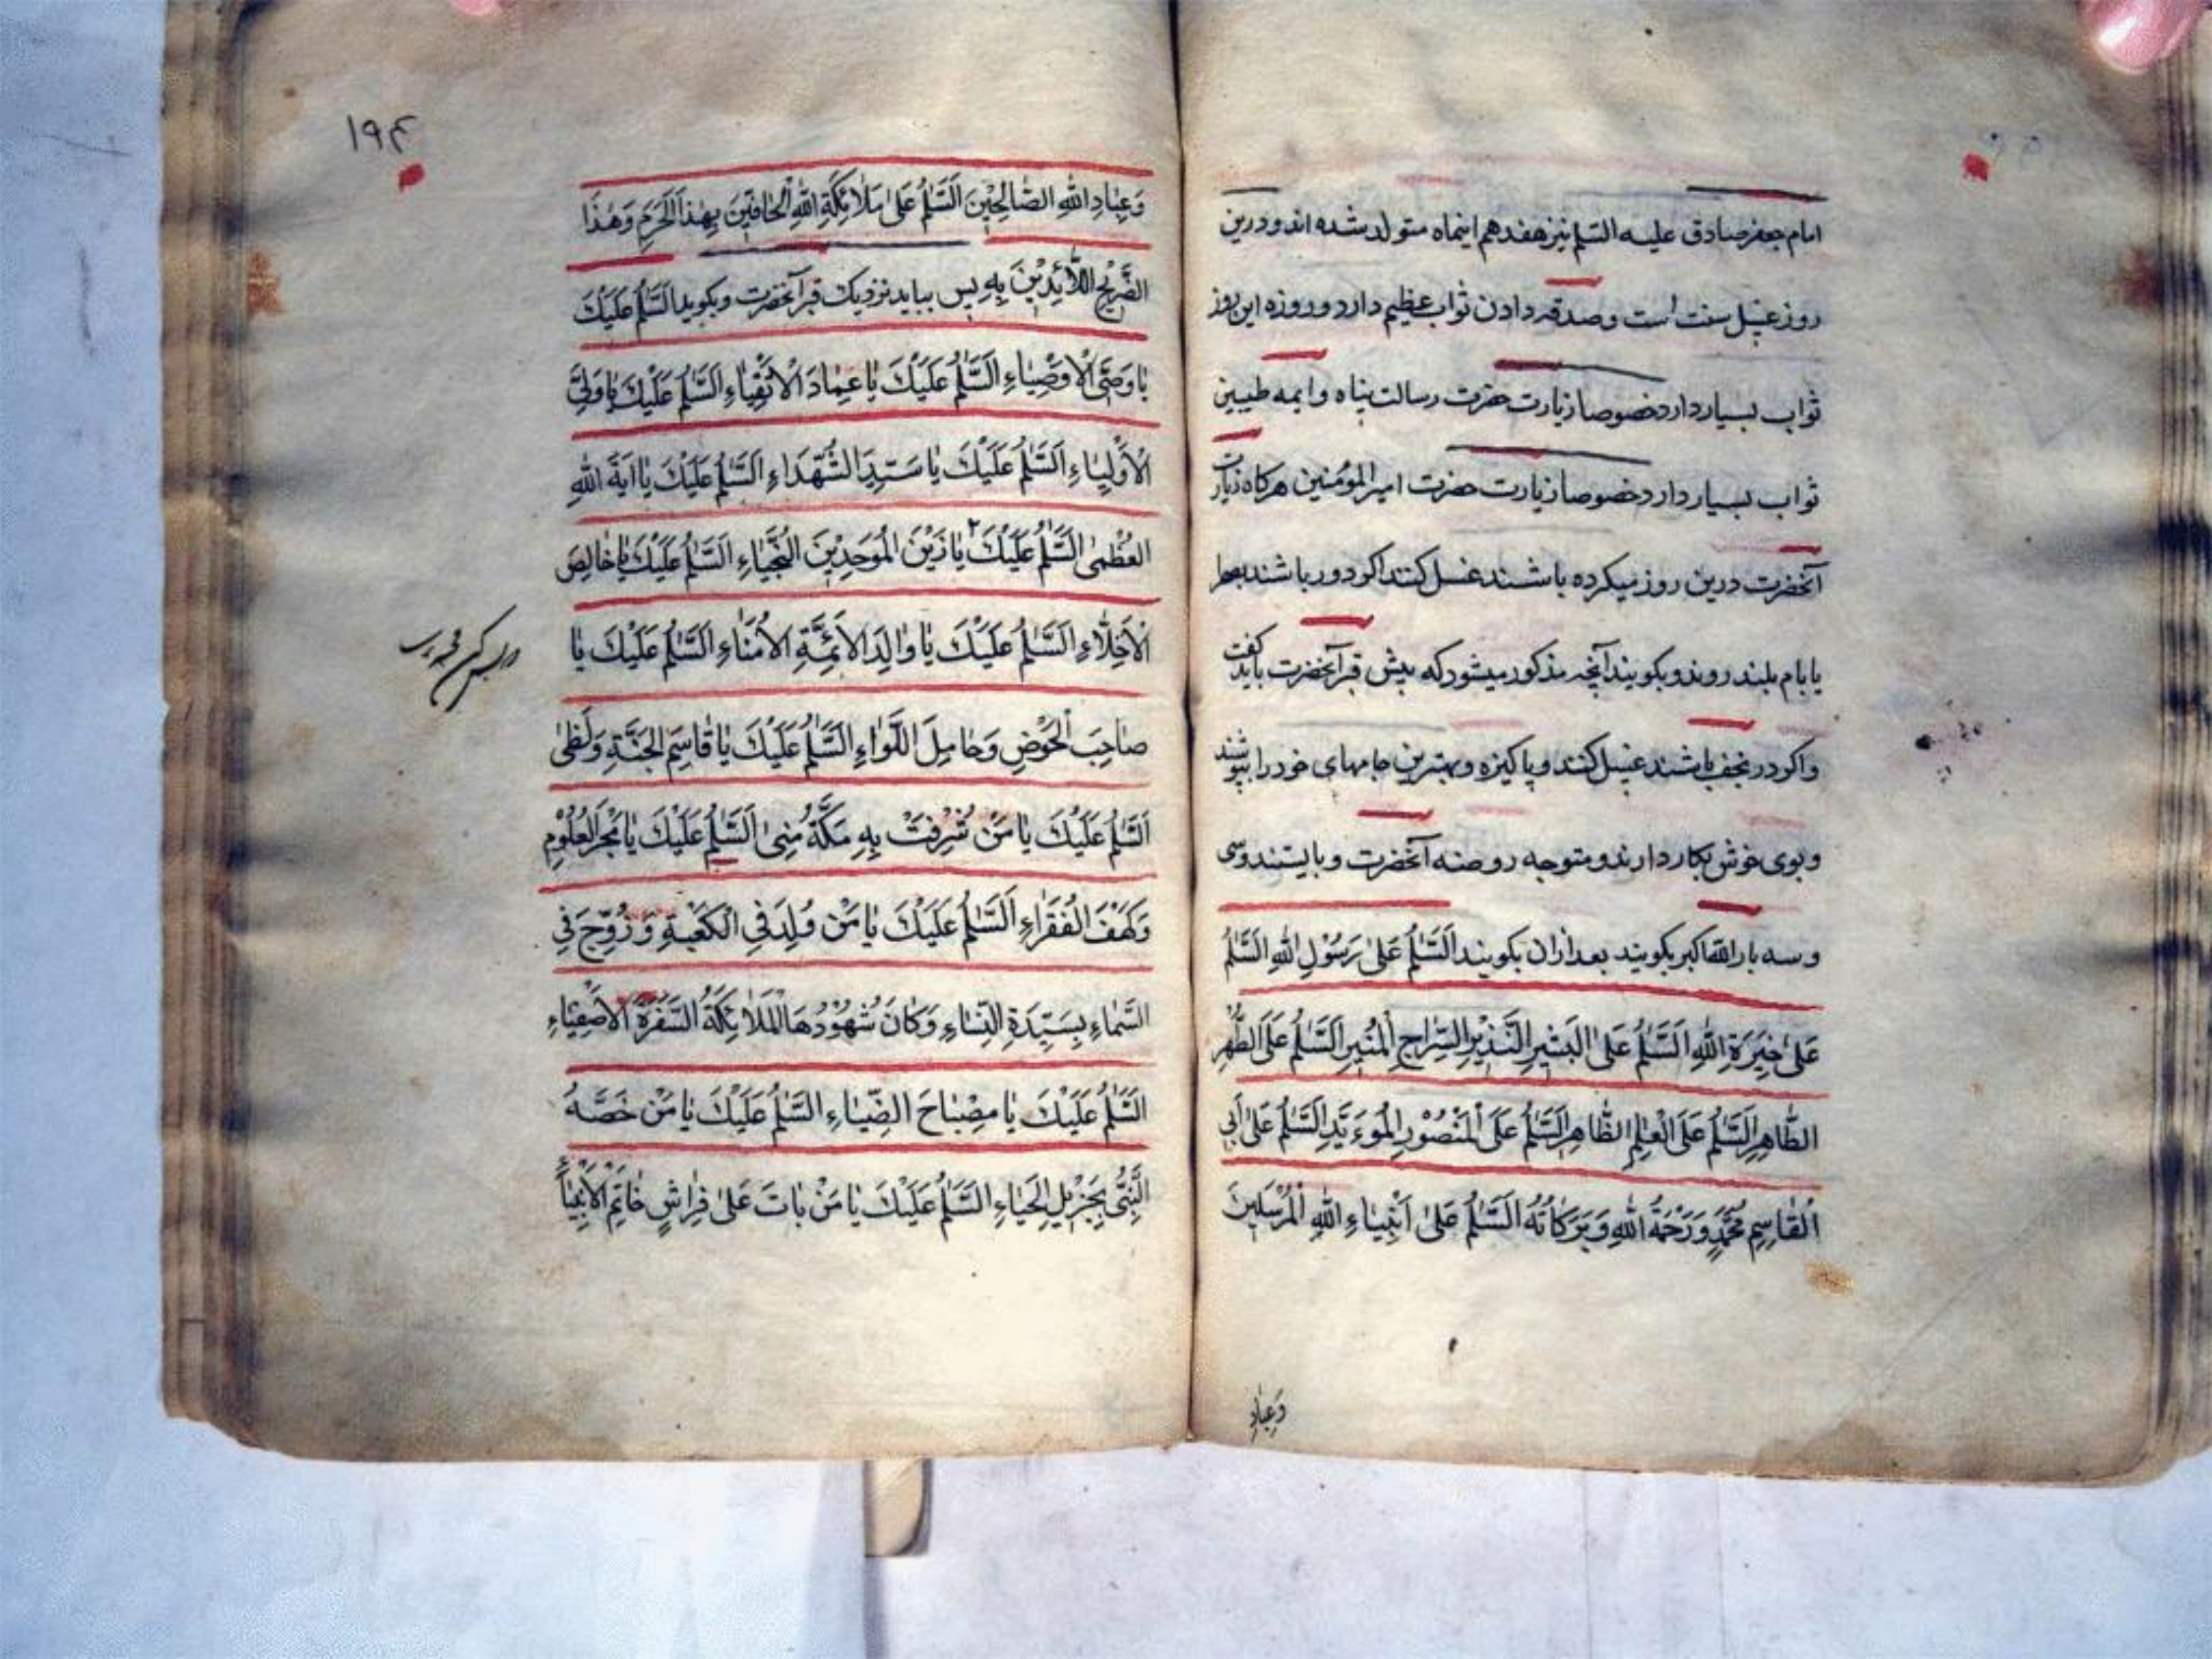 امام جعفر صادق علیه السلم نیز هفدهم اینماه متولد شده اند و درین
روز غسل سنت است و صدقه دادن ثواب عظیم دارد و روزه این روز
ثواب بسیار دارد خصوصا زیارت حضرت رسالت پناه و ایمه طیبین
ثواب بسیار دارد خصوصا زیارت حضرت امیر المؤمنین هرکاه زیارت
آنحضرت درین روز میکرده باشند غسل کنند اکر دور باشند بصحرا
یا بام بلند روند و بکویند آنچه مذکور میشود که پیش قبر آنحضرت باید کفت
و اکر در نجف باشند غسل کنند و پاکیزه و بهترین جامهای خود را بپوشند
و بوی خوش بکار دارند و متوجه روضه آنحضرت و بایستند و سی
و سه بار الله اکبر بکویند بعد ازان بکویند اَلسَّلٰمُ عَلیٰ رَسُوْلِ اللّٰهِ السَّلٰمُ
عَلیٰ خِیَرَةِ اللّٰهِ اَلسَّلٰمُ عَلیٰ الْبَشِیْرِ النَّذِیْرِ السِّرَاجِ الْمُنِیْرِ السَّلٰمُ عَلَی الطُّهْرِ
الطَّاهِرِ السَّلٰمُ عَلَی الْعَلَمِ الظَّاهِرِ السَّلٰمُ عَلَی الْمَنْصُوْرِ الْمُوَءَیَّدِ السَّلٰمُ عَلیٰ اَبِی
الْقَاسِمِ مُحَمَّدٍ وَرَحْمَةُ اللّٰهِ وَبَرَکَاتُهُ السَّلٰمُ عَلیٰ اَنْبِیَاءِ اللّٰهِ الْمُرْسَلِیْنَ
وَعِبَادِ
١٩۴
وَعِبَادِ اللّٰهِ الصَّالِحِیْنَ اَلسَّلٰمُ عَلیٰ مَلَائِکَةِ اللّٰهِ الْحَافِّیْنَ بِهٰذَا الْحَرَمِ وَهٰذَا
الضَّرِیْحِ اللَّائِذِیْنَ بِهِ پس بیاید نزدیک قبر آنحضرت و بکوید السَّلٰمُ عَلَیْكَ
یَا وَصِیَّ الْاَوْصِیَاءِ اَلسَّلٰمُ عَلَیْكَ یَا عِمَادَ الْاَتْقِیَاءِ السَّلٰمُ عَلَیْكَ یَا وَلِیَّ
الْاَوْلِیَاءِ اَلسَّلٰمُ عَلَیْكَ یَا سَیِّدَ الشُّهَدَاءِ اَلسَّلٰمُ عَلَیْكَ یَا اٰیَةَ اللّٰهِ
الْعُظْمیٰ السَّلٰمُ عَلَیْكَ یَا زَیْنَ الْمُوَحِدِیْنَ النُّجَبَاءِ اَلسَّلٰمُ عَلَیْكَ یَا خَالِصَ
الْاَخِلَّاءِ اَلسَّلٰمُ عَلَیْكَ یَا وَالِدَ الْاَئِمَّةِ الْاُمَنَاءِ السَّلٰمُ عَلَیْكَ یَا
صَاحِبَ الْحَوْضِ وَحَامِلَ اللَّوَاءِ السَّلٰمُ عَلَیْكَ یَا قَاسِمَ الْجَنَّةِ وَلَظیٰ
اَلسَّلٰمُ عَلَیْكَ یَا مَنْ شُرِفَتْ بِهِ مَکَّةُ مِنیٰ اَلسَّلٰمُ عَلَیْكَ یَا بَحْرَ الْعُلُوْمِ
وَکَهْفَ الْفُقَرَاءِ اَلسَّلٰمُ عَلَیْكَ یَا مَنْ وُلِدَ فِی الْکَعْبَةِ وَزُوِّجَ فِی
السَّمَاءِ بِسَیِّدَةِ النِّسَاءِ وَکَانَ شُهُوْدُهَا الْمَلَائِکَةُ السَّفَرَةُ الْاَصْفِیَاءِ
السَّلٰمُ عَلَیْكَ یَا مِصْبَاحَ الضِّیَاءِ السَّلٰمُ عَلَیْكَ یَا مَنْ خَصَّهُ
النَّبِیُّ بِجَزِیْلِ الْحَبَاءِ السَّلٰمُ عَلَیْكَ یَا مَنْ بَاتَ عَلیٰ فِرَاشِ خَاتِمِ الْاَنْبِیَاءِ